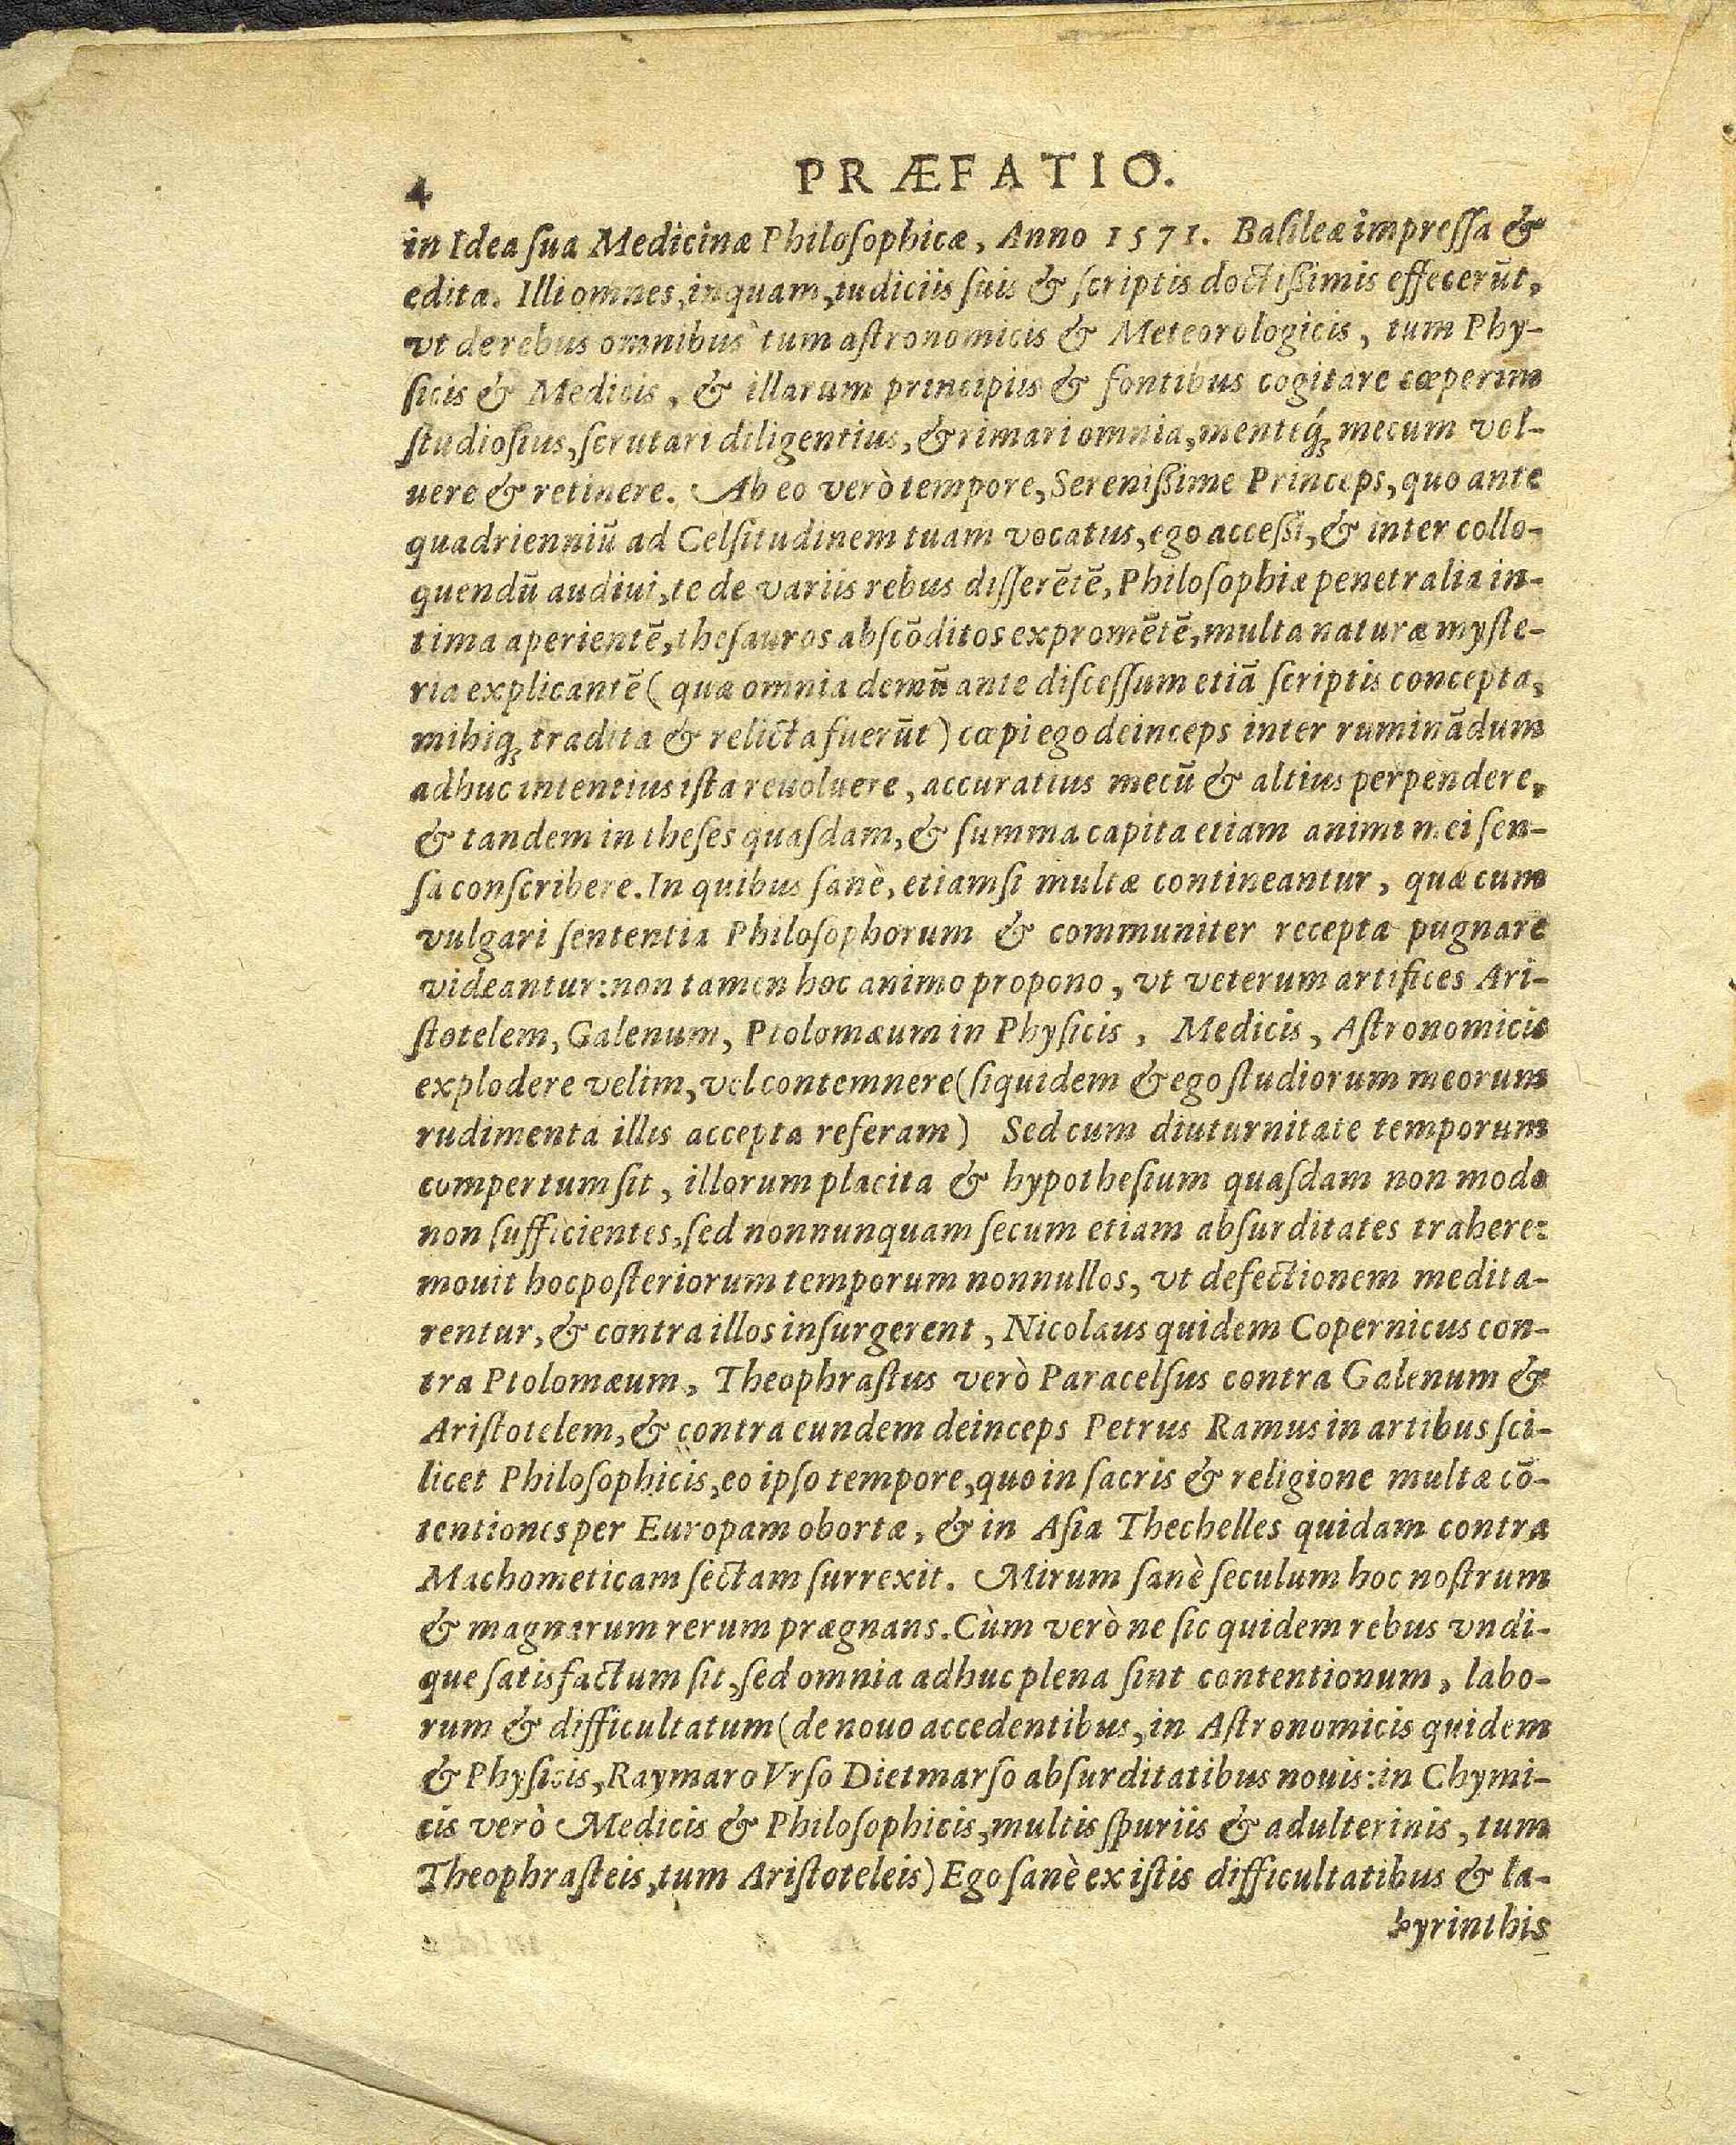 4 PRÆFATIO.
in Idea ſua Medicinæ Philoſophicæ, Anno 1571. Baſileæ impreſſa &
edita. Illi omnes, inquam, iudiciis ſuis & ſcriptis doctißimis effecerūt,
vt de rebus omnibus tum aſtronomicis & Meteorologicis, tum Phy-
ſicis & Medicis, & illarum principiis & fontibus cogitare cœperim
ſtudioſius, ſcrutari diligentius, & rimari omnia, menteq́; mecum vol-
uere & retinere. Ab eo verò tempore, Serenißime Princeps, quo ante
quadrienniū ad Celſitudinem tuam vocatus, ego acceßi, & inter collo-
quendū audiui, te de variis rebus diſſerētē, Philoſophiæ penetralia in-
tima aperientē, theſauros abſcōditos expromētē, multa naturæ myſte-
ria explicantē (quæ omnia demū ante diſceſſum etiā ſcriptis concepta,
mihiq; tradita & relicta fuerūt) cœpi ego deinceps inter ruminādum
adhuc intentius iſta reuoluere, accuratius mecū & altius perpendere,
& tandem in theſes quaſdam, & ſumma capita etiam animi mei ſen-
ſa conſcribere. In quibus ſanè, etiamſi multæ contineantur, quæ cum
vulgari ſententia Philoſophorum & communiter recepta pugnare
videantur: non tamen hoc animo propono, vt veterum artifices Ari-
ſtotelem, Galenum, Ptolomæum in Phyſicis, Medicis, Aſtronomicis
explodere velim, vel contemnere (ſiquidem & ego ſtudiorum meorum
rudimenta illis accepta referam) Sed cum diuturnitate temporum
compertum ſit, illorum placita & hypotheſium quaſdam non modo
non ſufficientes, ſed nonnunquam ſecum etiam abſurditates trahere:
mouit hoc poſteriorum temporum nonnullos, vt defectionem medita-
rentur, & contra illos inſurgerent, Nicolaus quidem Copernicus con-
tra Ptolomæum, Theophraſtus verò Paracelſus contra Galenum &
Ariſtotelem, & contra eundem deinceps Petrus Ramus in artibus ſci-
licet Philoſophicis, eo ipſo tempore, quo in ſacris & religione multæ cō-
tentiones per Europam obortæ, & in Aſia Thechelles quidam contra
Machometicam ſectam ſurrexit. Mirum ſanè ſeculum hoc noſtrum
& magnarum rerum prægnans. Cùm verò ne ſic quidem rebus vndi-
que ſatisfactum ſit, ſed omnia adhuc plena ſint contentionum, labo-
rum & difficultatum (de nouo accedentibus, in Aſtronomicis quidem
& Phyſicis, Raymaro Vrſo Dietmarſo abſurditatibus nouis: in Chymi-
cis verò Medicis & Philoſophicis, multis ſpuriis & adulterinis, tum
Theophraſteis, tum Ariſtoteleis) Ego ſanè ex iſtis difficultatibus & la-
byrinthis